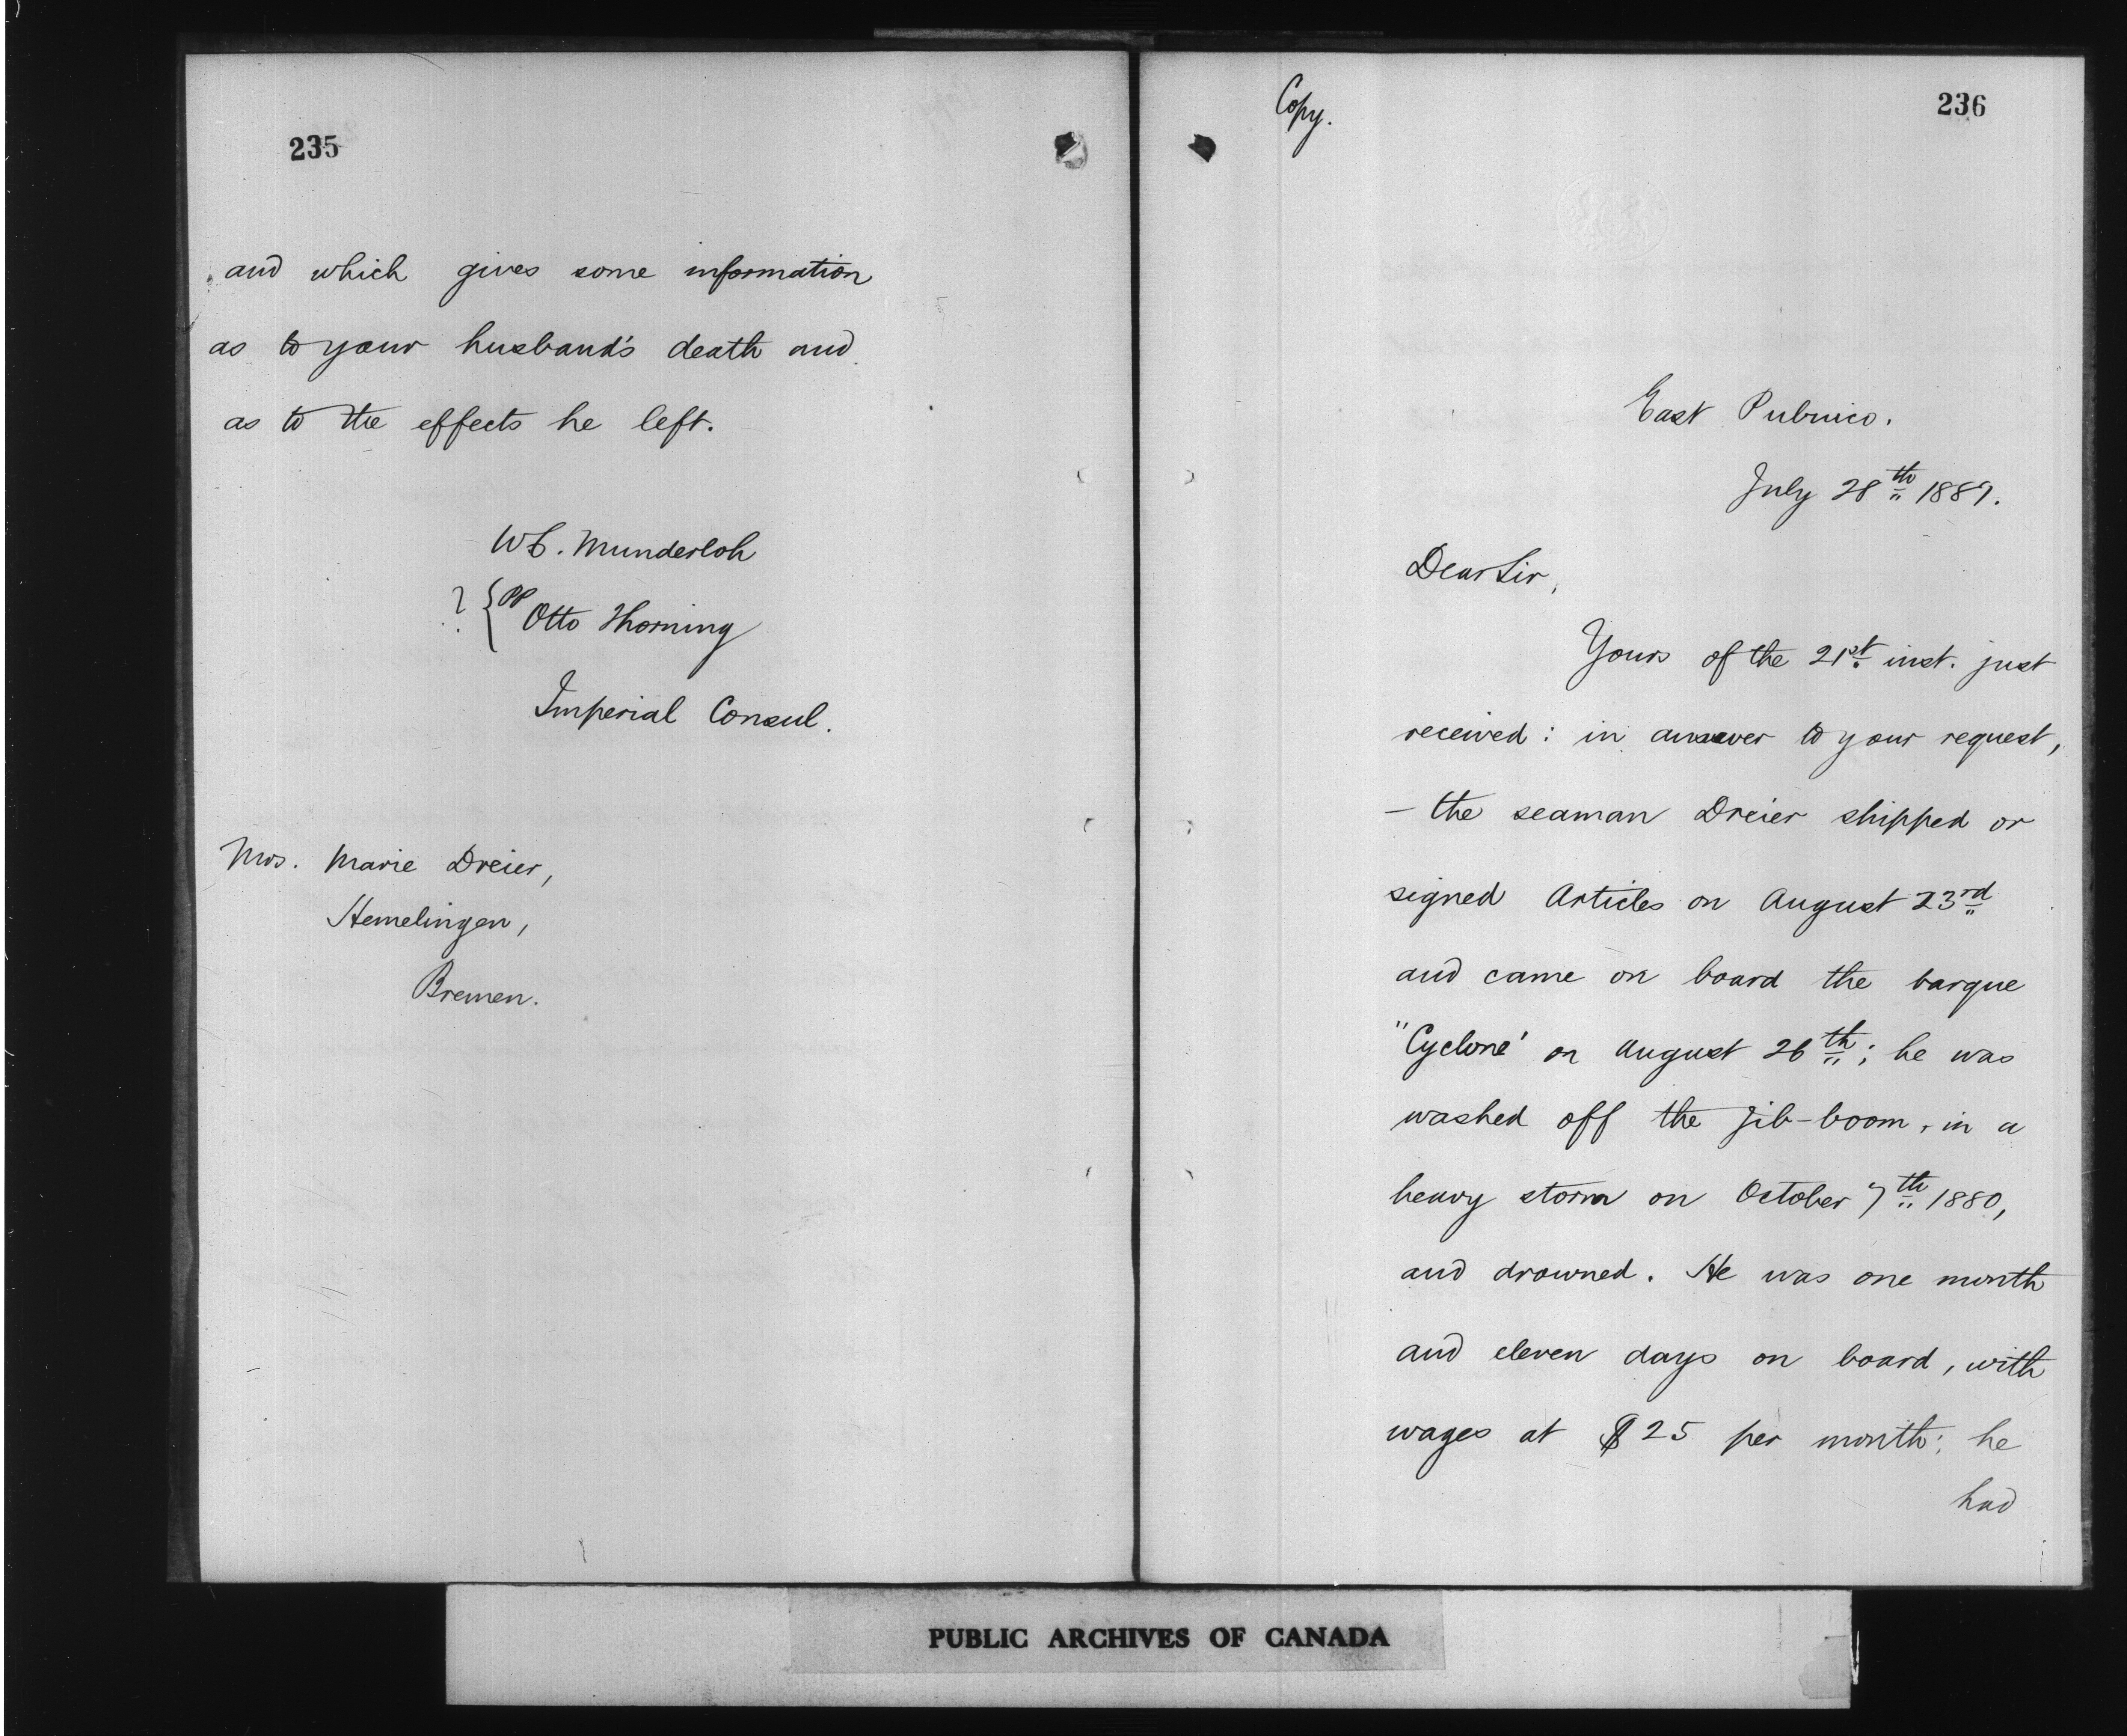 235
and which gives some information
as to your husband's death and
as to the effects he left.
W. C. Munderloh
? { pp Otto Thorning
Imperial Consul.
Mrs. Marie Dreier,
Hemelingen,
Bremen.
Copy.
236
East Pubnico.
July 28th 1889.
Dear Sir,
Yours of the 21st inst. just
received: in answer to your request,
- the seaman Dreier shipped or
signed Articles on August 23rd
and came on board the barque
"Cyclone' on August 26th; he was
washed off the jib-boom, in a
heavy storm on October 7th 1880,
and drowned. He was one month
and eleven days on board, with
wages at $25 per month; he
had
PUBLIC ARCHIVES OF CANADA